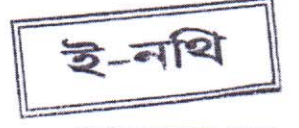 ই-নথি